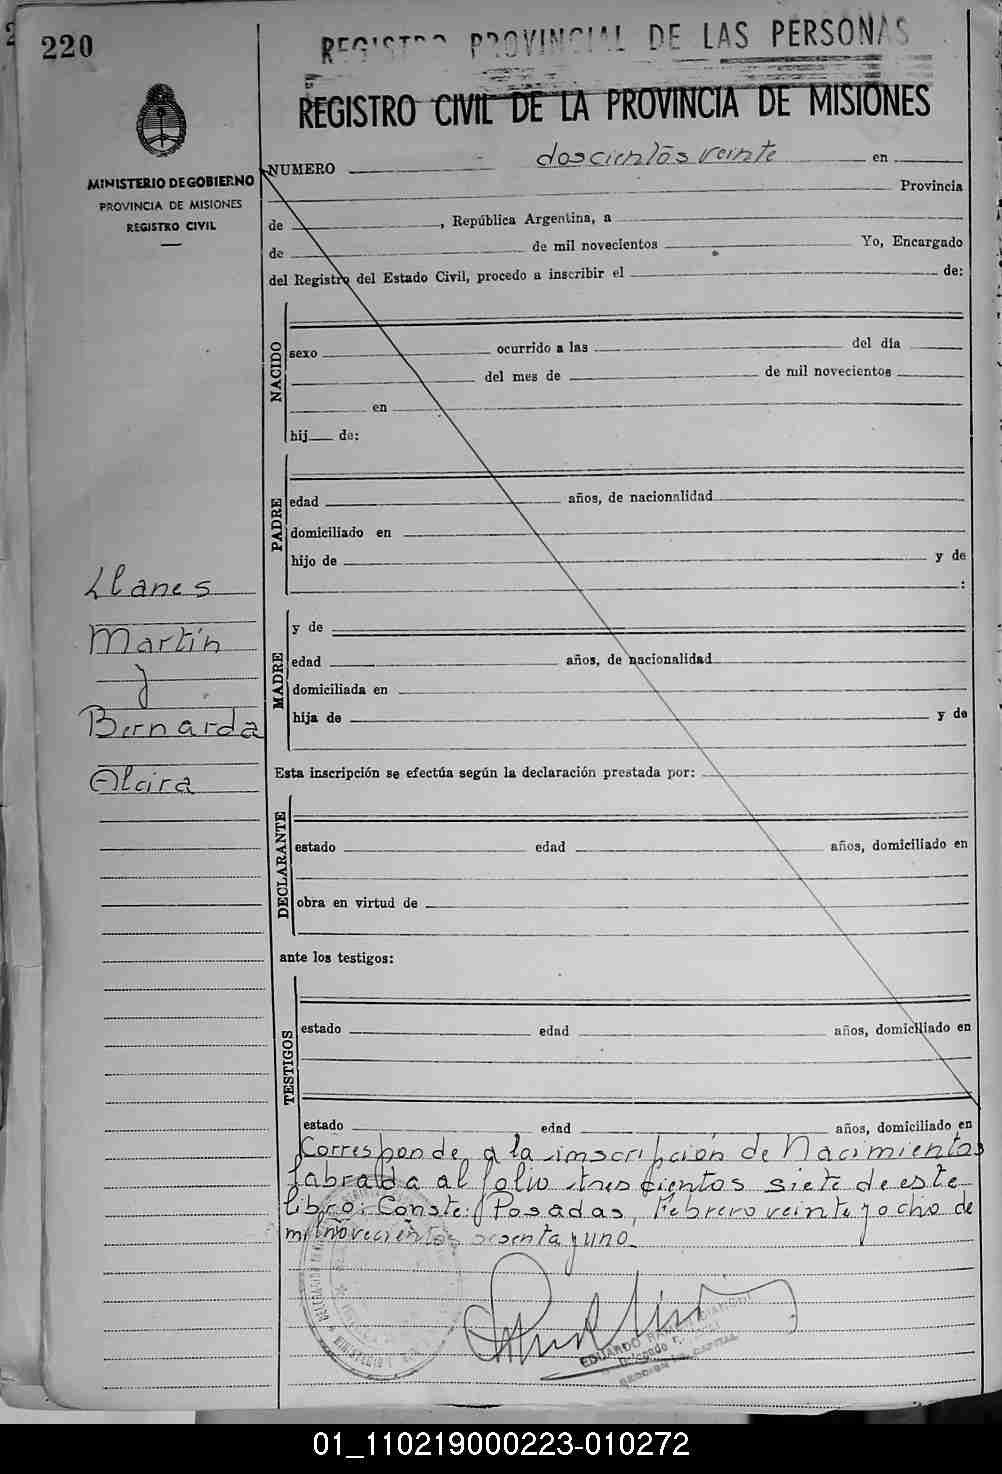 220
REGISTRO PROVINCIAL DE LAS PERSONAS
REGISTRO CIVIL DE LA PROVINCIA DE MISIONES
MINISTERIO DE GOBIERNO
PROVINCIA DE MISIONES
REGISTRO CIVIL
NUMERO doscientos veinte en
Provincia
de , República Argentina, a
de de mil novecientos Yo, Encargado
del Registro del Estado Civil, procedo a inscribir el de:
NACIDO
sexo ocurrido a las del día
del mes de de mil novecientos
en
hij de:
PADRE
edad años, de nacionalidad
domiciliado en
hijo de y de
:
Llanes
Martín
y
Bernarda
Alcira
MADRE
y de
edad años, de nacionalidad
domiciliada en
hija de y de
Esta inscripción se efectúa según la declaración prestada por:
DECLARANTE
estado edad años, domiciliado en
obra en virtud de
ante los testigos:
TESTIGOS
estado edad años, domiciliado en
estado edad años, domiciliado en
Corresponde a la inscripción de Nacimiento
labrada al folio trescientos siete de este
libro: Conste: Posadas, Febrero veinte y ocho de
mil novecientos sesenta y uno
EDUARDO
Delegado
CAPITAL
01_110219000223-010272